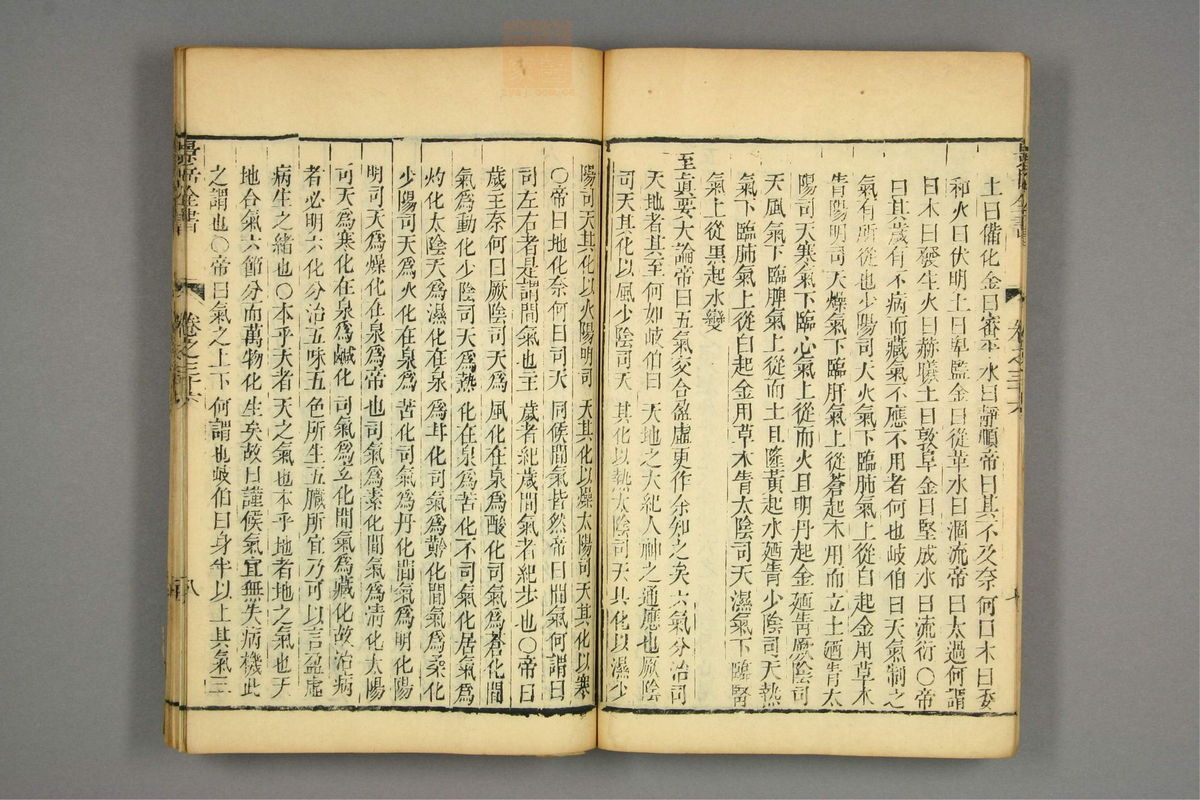 土曰備化金曰審平水曰靜順帝曰其不及奈何曰木曰委
和火曰伏明土曰卑監金曰從革水曰涸流帝曰太過何謂
曰木曰發生火曰赫曦土曰敦阜金曰堅成水曰流衍○帝
曰其歲有不病而藏氣不應不用者何也岐伯曰天氣制之
氣有所從也少陽司天火氣下臨肺氣上從白起金用草木
眚陽明司天燥氣下臨肝氣上從蒼起木用而立土廼眚太
陽司天寒氣下臨心氣上從而火且明丹起金廼眚厥陰司
天風氣下臨脾氣上從而土且隆黃起水廼眚少陰司天熱
氣下臨肺氣上從白起金用草木眚太陰司天濕氣下臨腎
氣上從黑起水變
至眞要大論帝曰五氣交合盈虛更作余知之矣六氣分治司
天地者其至何如岐伯曰天地之大紀人神之通應也厥陰
司天其化以風少陰司天其化以熱太陰司天其化以濕少
陽司天其化以火陽明司天其化以燥太陽司天其化以寒
○帝曰地化奈何曰司天同候間氣皆然帝曰間氣何謂曰
司左右者是謂間氣也主歲者紀歲間氣者紀步也○帝曰
歲主奈何曰厥陰司天爲風化在泉爲酸化司氣爲蒼化間
氣爲動化少陰司天爲熱化在泉爲苦化不司氣化居氣爲
灼化太陰司天爲濕化在泉爲甘化司氣爲黅化間氣爲柔化
少陽司天爲火化在泉爲苦化司氣爲丹化間氣爲明化陽
明司天爲燥化在泉爲帝也司氣爲素化間氣爲清化太陽
司天爲寒化在泉爲鹹化司氣爲玄化間氣爲藏化故治病
者必明六化分治五味五色所生五臟所宜乃可以言盈虛
病生之緒也○本乎天者天之氣也本乎地者地之氣也天
地合氣六節分而萬物化生矣故曰謹候氣宜無失病機此
之謂也○帝曰氣之上下何謂也岐伯曰身半以上其氣三
卷之三六
八